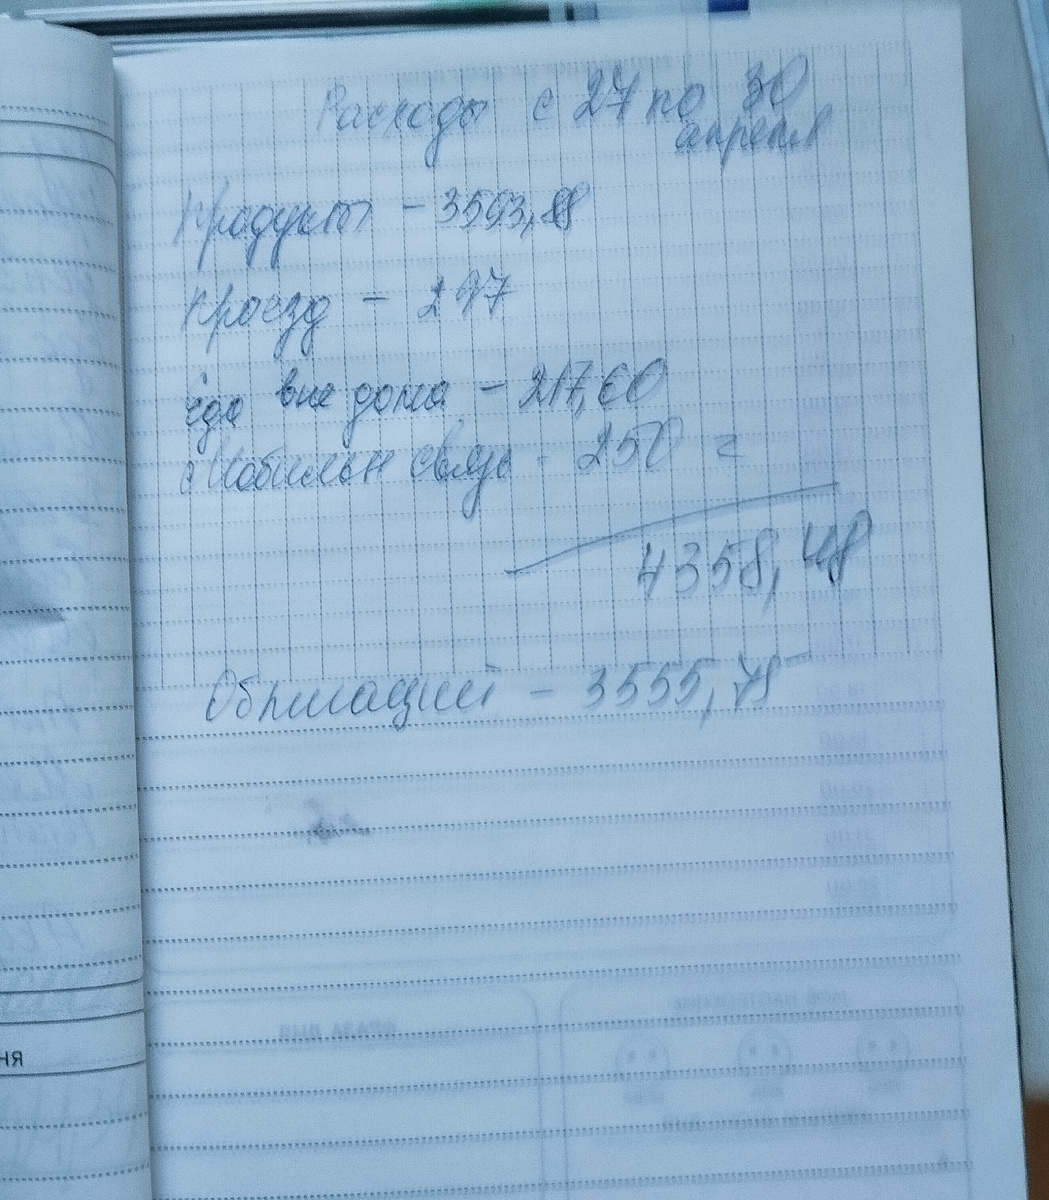 Расходы с 27 по 30
апреля
Продукты - 3593,88
Проезд - 297
Еда вне дома - 217,60
Мобильн связь - 250 =
4358,48
Облигаций - 3555,75
ня